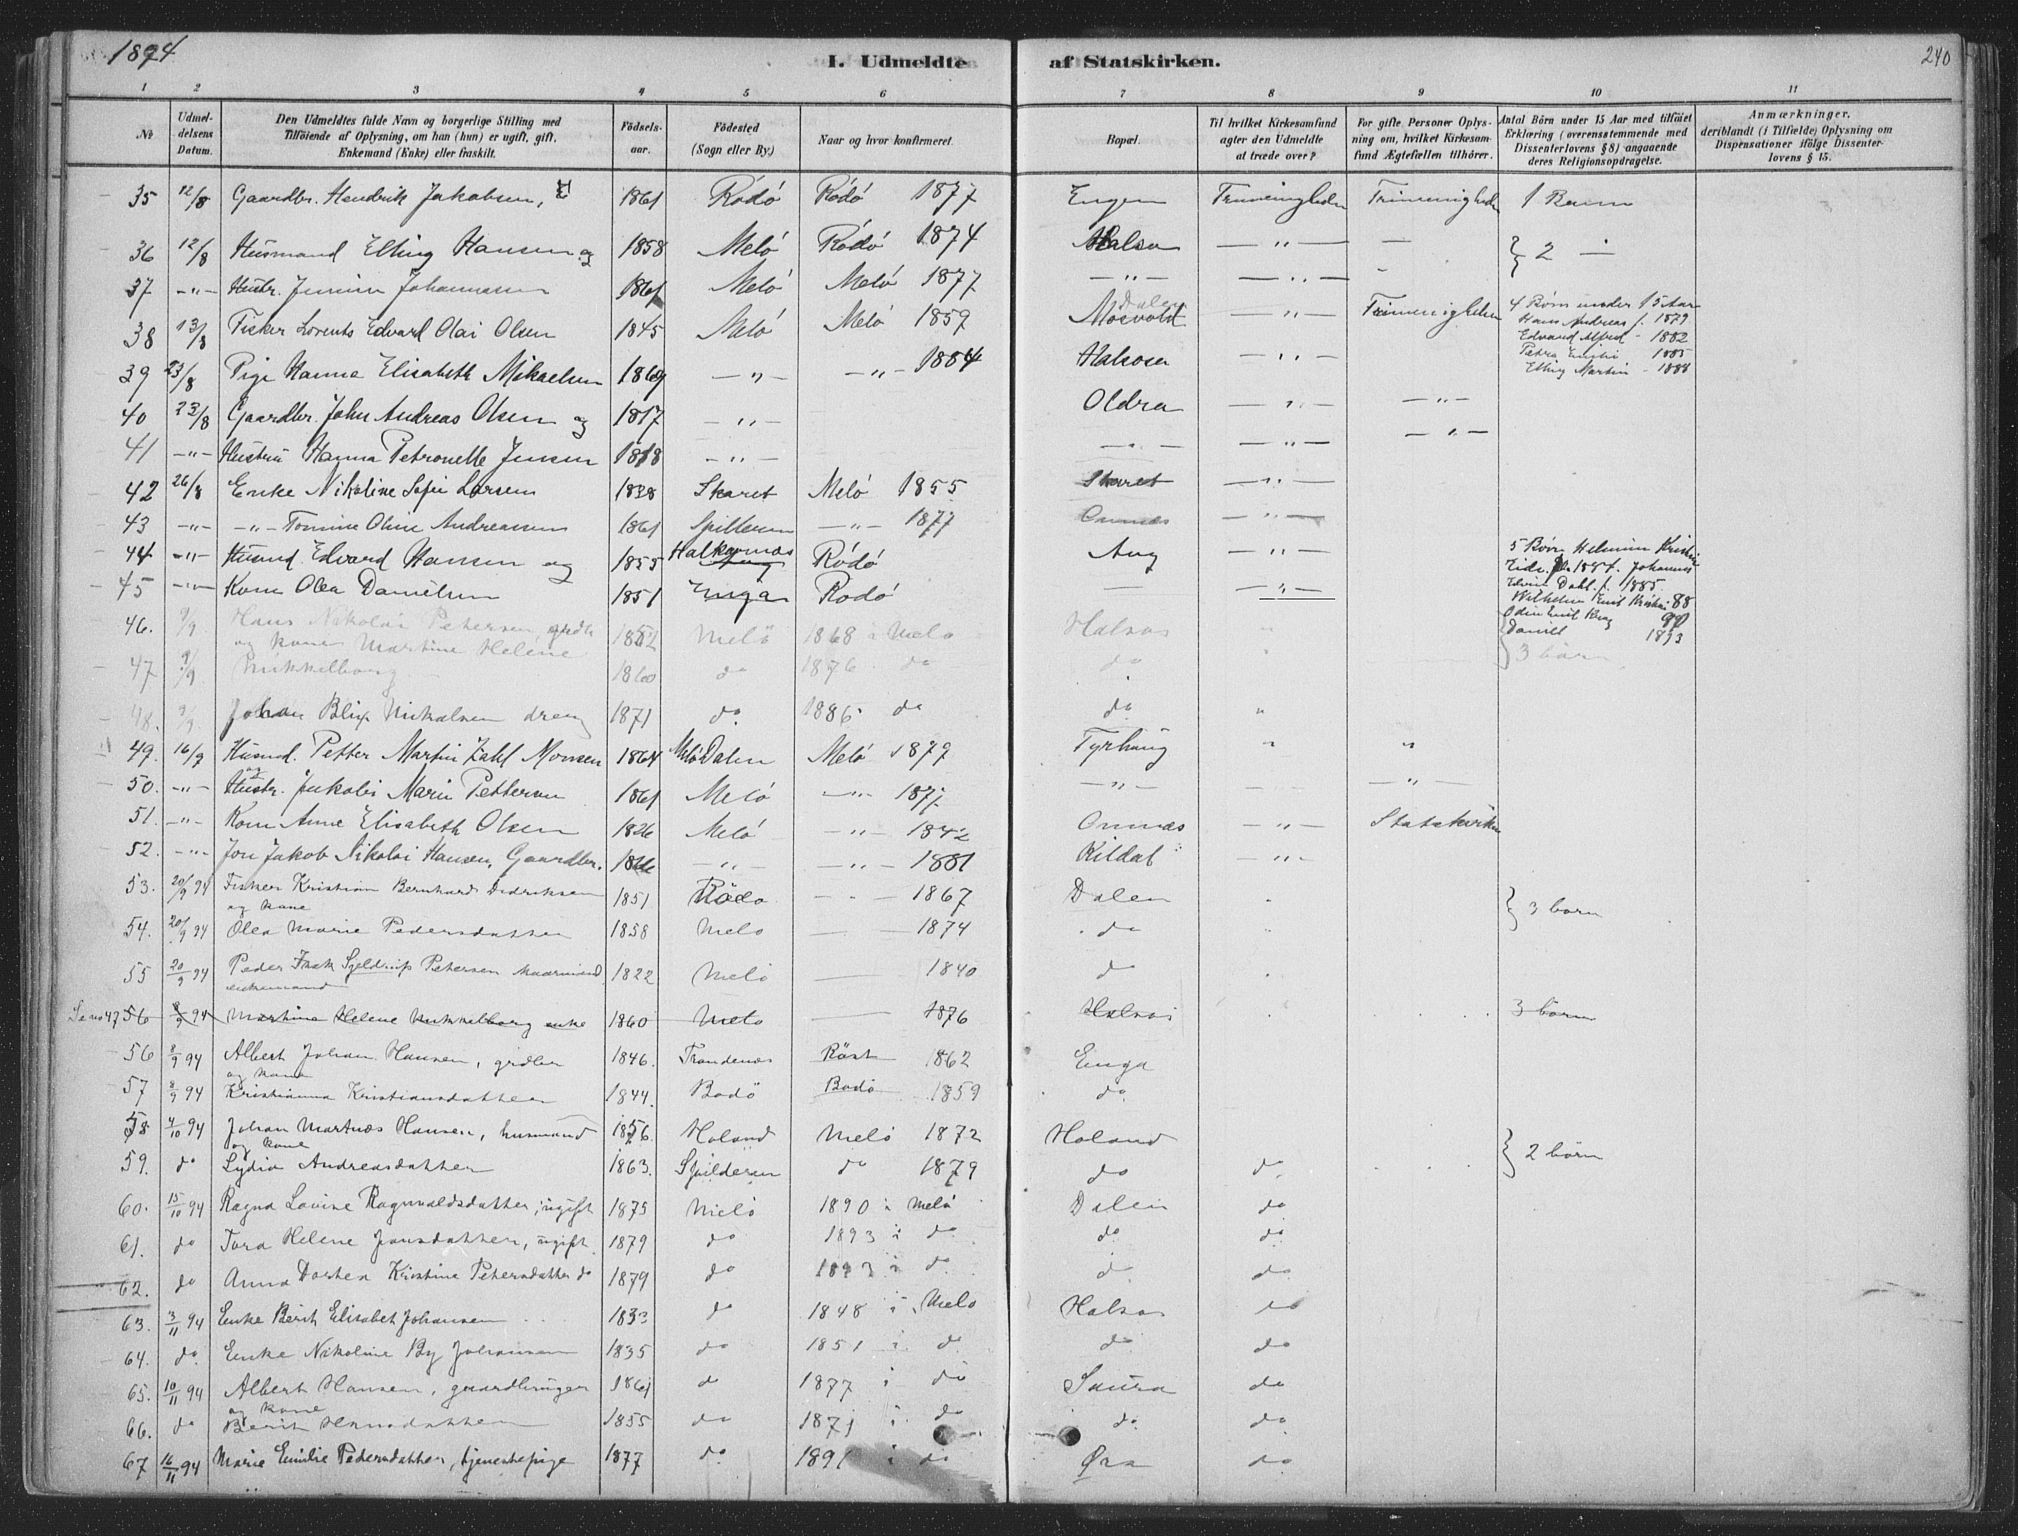 1894
I. Udmeldte af Statskirken.
240
1 2 3 4 5 6 7 8 9 10 11
No
Udmeldelsens Datum.
Den Udmeldtes fulde Navn og borgerlige Stilling med Tilføiende af Oplysning, om han (hun) er ugift, gift, Enkemand (Enke) eller fraskilt.
Fødselsaar.
Fødested (Sogn eller By:)
Naar og hvor konfirmeret.
Bopæl.
Til hvilket Kirkesamfund agter den Udmeldte at træde over?
For gifte Personer Oplysning om, hvilket Kirkesamfund Ægtefællen tilhører.
Antal Børn under 15 Aar med tilføiet Erklæring (overensstemmende med Dissenterlovens § 8) angaaende deres Religionsopdragelse.
Anmærkninger, deriblandt (i Tilfælde) Oplysning om Dispensationer ifølge Dissenterlovens § 15.
35 12/8 Gaardbr. Hendrik Jakobsen, 1861 Rödö Rödö 1877 Engen 1 Barn
36 12/8 Husmand Elling Hansen og 1858 Melö Rödö 1874 Halsa — " — — } 2 —
37 — " — Hustr. Johannessen 1861 Melö Melö 1877 — " — — " —
38 13/8 Fisker Lorents Edvard Olai Olsen 1845 Melö Melö 1859 Dalen Mosvold — " — 4 Børn under 15 Aar
Hans Andreas f. 1879
Edvard Alfred - 1882
Petra Emilie - 1885
Elling Martin - 1888
39 23/8 Pige Hanna Elisabeth Mikaelsen 1869 — " — — " — 1884 Halsosen — " —
40 23/8 Gaardbr. John Andreas Olsen og 1817 — " — Oldra — " — — " —
41 — " — Hustru Hanna Petronelle Jensen 1818 — " — — " — — " — — " —
42 26/8 Enke Nikoline Sofie Larsen 1838 Skaret Melö 1855 Skaret — " —
43 — " — — " — Tomine Oline Andreassen 1861 Spilderen — " — 1877 Onnes — " —
44 — " — Husmd. Edvard Hansen og 1855 Rödö Aug — " — 5 Børn
45 — " — Kone Olea Danielsen 1851 Enga Rödö — — " —
Edvin Dahl f. 1885
Wilhelm Emil 88
Odin Emil 90
Daniel 1893
46. 9/9 Hans Nikolai Petersen, grdb. 1852 Melö 1868 i Melö Halsos "
og kone Martine Helene
47 9/9 Mikkelborg 1860 do 1876 do do } 3 börn
48. 9/9 Johan Blix Mickalsen dreng 1871 do. 1886 do do. "
49. 16/9 Husmd. Petter Martin Zahl Monsen 1864 Melö Dalen Melö 1879 Tyrhaug " "
og
50. — " — Hustr. Jakobi Marie Pettersen 1861 Melö — " — 1877 — " — — " —
51. — " — Kone Anne Elisabeth Olsen 1826 Melö — " — 1842 Onnes — " — Statskirken
52. — " — Jon Jakob Nikolai Hansen, Gaardbr. — " — — " — 1881 Kildal — " —
53. 20/9 94 Fisker Kristian Bernhard Didriksen 1851 Rödö - " - 1867 Dalen
og kone
54. 20/9 94 Olea Marie Pedersdatter 1858 Melö — 1874 do } 3 börn
55 20/9 94 Peder Falk Sjeldrup Petersen 1822 Melö — 1840 do
enkemand
Se no 47 56 8/9 94 Martina Helene Mikkelborg enke 1860 Melö — 1876 Halsos 3 börn
56 8/9 94 Albert Johan Hansen, grdbr 1846. Trondenæs Röst 1862 Enga
og kone
57 8/9 94 Kristianna Kristiansdatter 1844. Bodö Bodö 1859 do.
58 4/10 94 Johan Martnæs Hansen, husmand 1856. Holand Melö 1872 Holand
og kone
59. do Lydia Andreasdatter 1863. Spilderen do 1879 do do } 2 börn
60. 15/10 94 Ragna Lovise Ragnvaldsdatter, ugift 1875 Melö 1890 i Melö Dalen do
61. do Tora Helene Jonsdatter, ugift 1879 do 1893 i do do do
62. do Anna Dortea Kristine Petersdatter do 1879 do 1893 i do do do
63. 3/11 94 Enke Berit Elisabet Johansen 1833 do 1848 i Melö Halsos do
64. do. Enke Nikoline By Johansen 1835 do 1851 i do do do
65. 10/11 94 Albert Hansen, gaardbruger 1861 do 1877 i do Saura do
og kone
66. do Berit Hansdatter 1855 do 1871 i do do do
67 16/11 94 Marie Emilie Pedersdatter, tjenestepige 1877 do 1891 i do Øra do